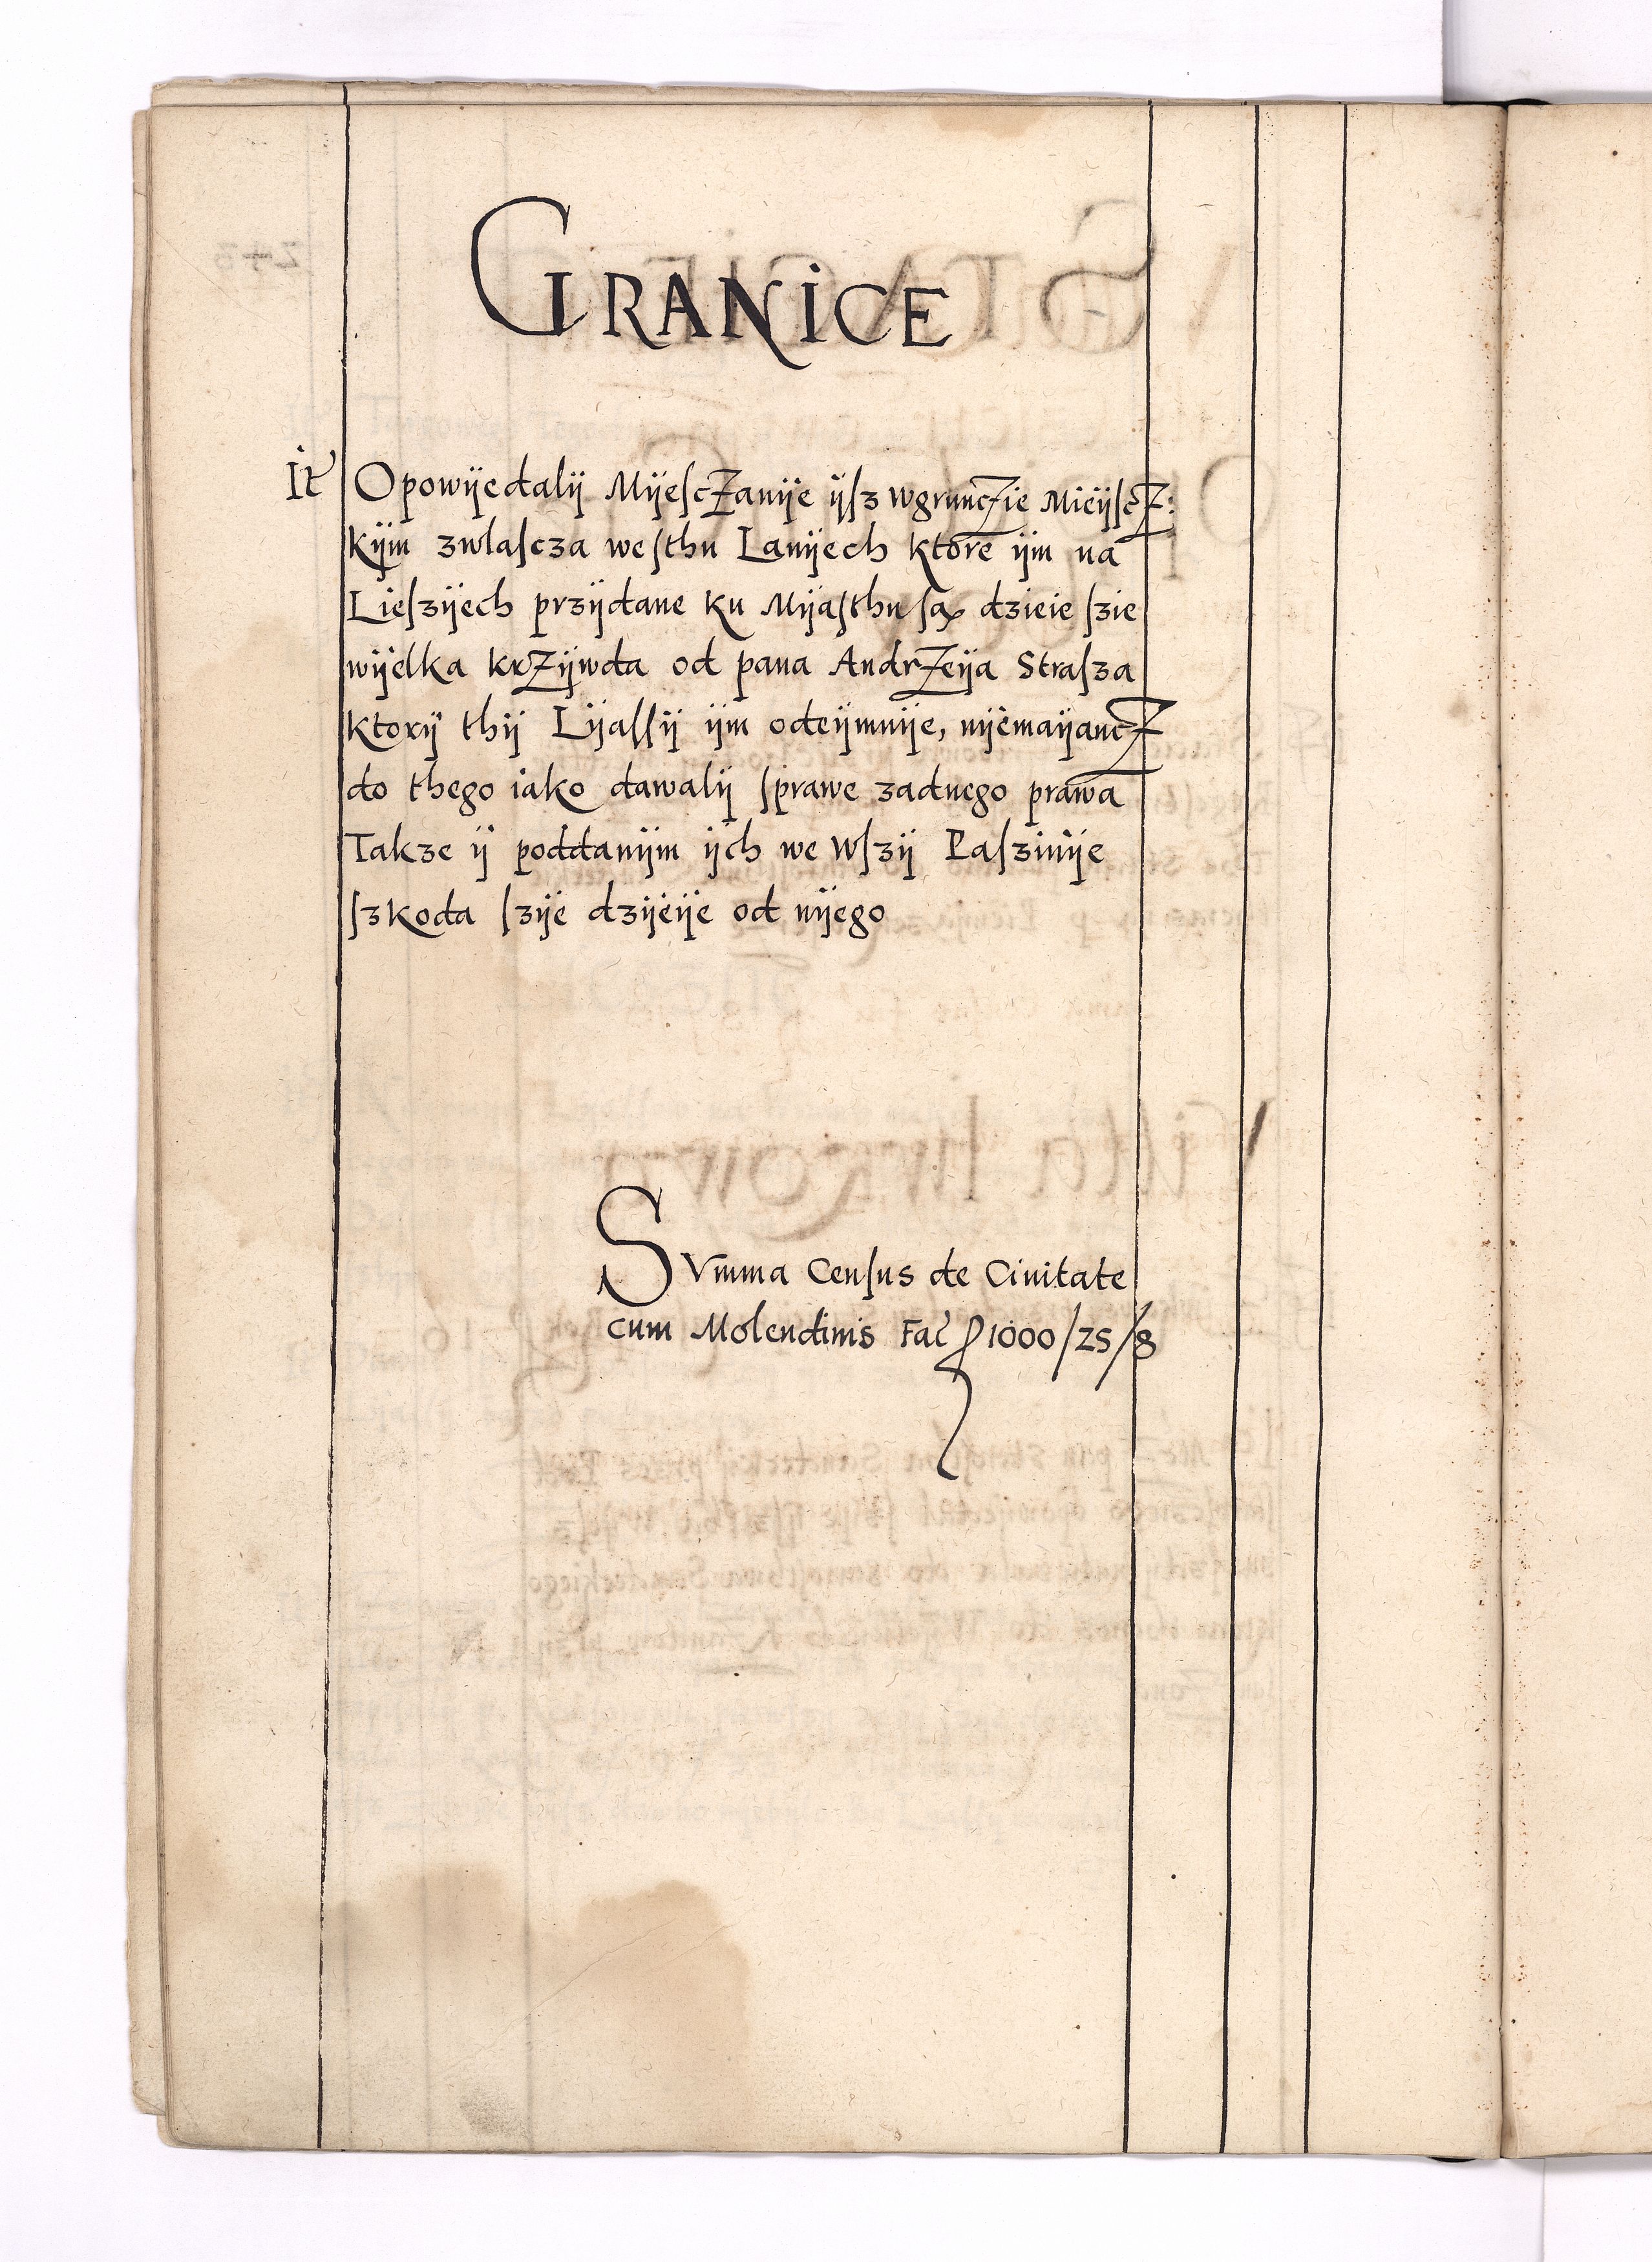 GRANICE
It Opowÿedalÿ MÿeſcZanÿe ÿſz wgruncZie MieÿſcZ:
kÿm zwlaſcza weſthu Lanÿech ktore ÿm na
Lieſzÿech przÿdane ku Mÿaſthu ſą dzieie ſzie
wÿelka krZÿwda od pana AndrZeÿa Straſza
ktorÿ thÿ Lÿaſſÿ ÿm odeÿmuÿe, nÿemaÿancZ
do thego iako dawalÿ ſprawe zadnego prawa
Takze ÿ poddanÿm ÿch we Wſzÿ Paſzinÿe
ſzkoda ſzÿe dzÿeÿe od nÿego
SVmma Cenſus de Ciuitate
cum Molendinis Fac 1000/25/8